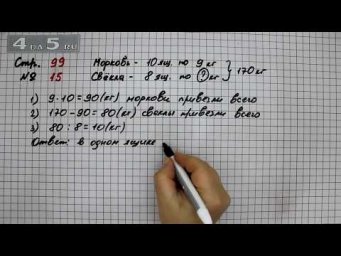 4 ДА 5.RU
Стр. 99 Морковь - 10 ящ. по 9 кг
№ 15 Свёкла - 8 ящ. по ? кг } 170 кг
1) 9·10=90(кг) моркови привезли всего
2) 170-90=80(кг) свеклы привезли всего
3) 80:8=10(кг)
Ответ: в одном ящике